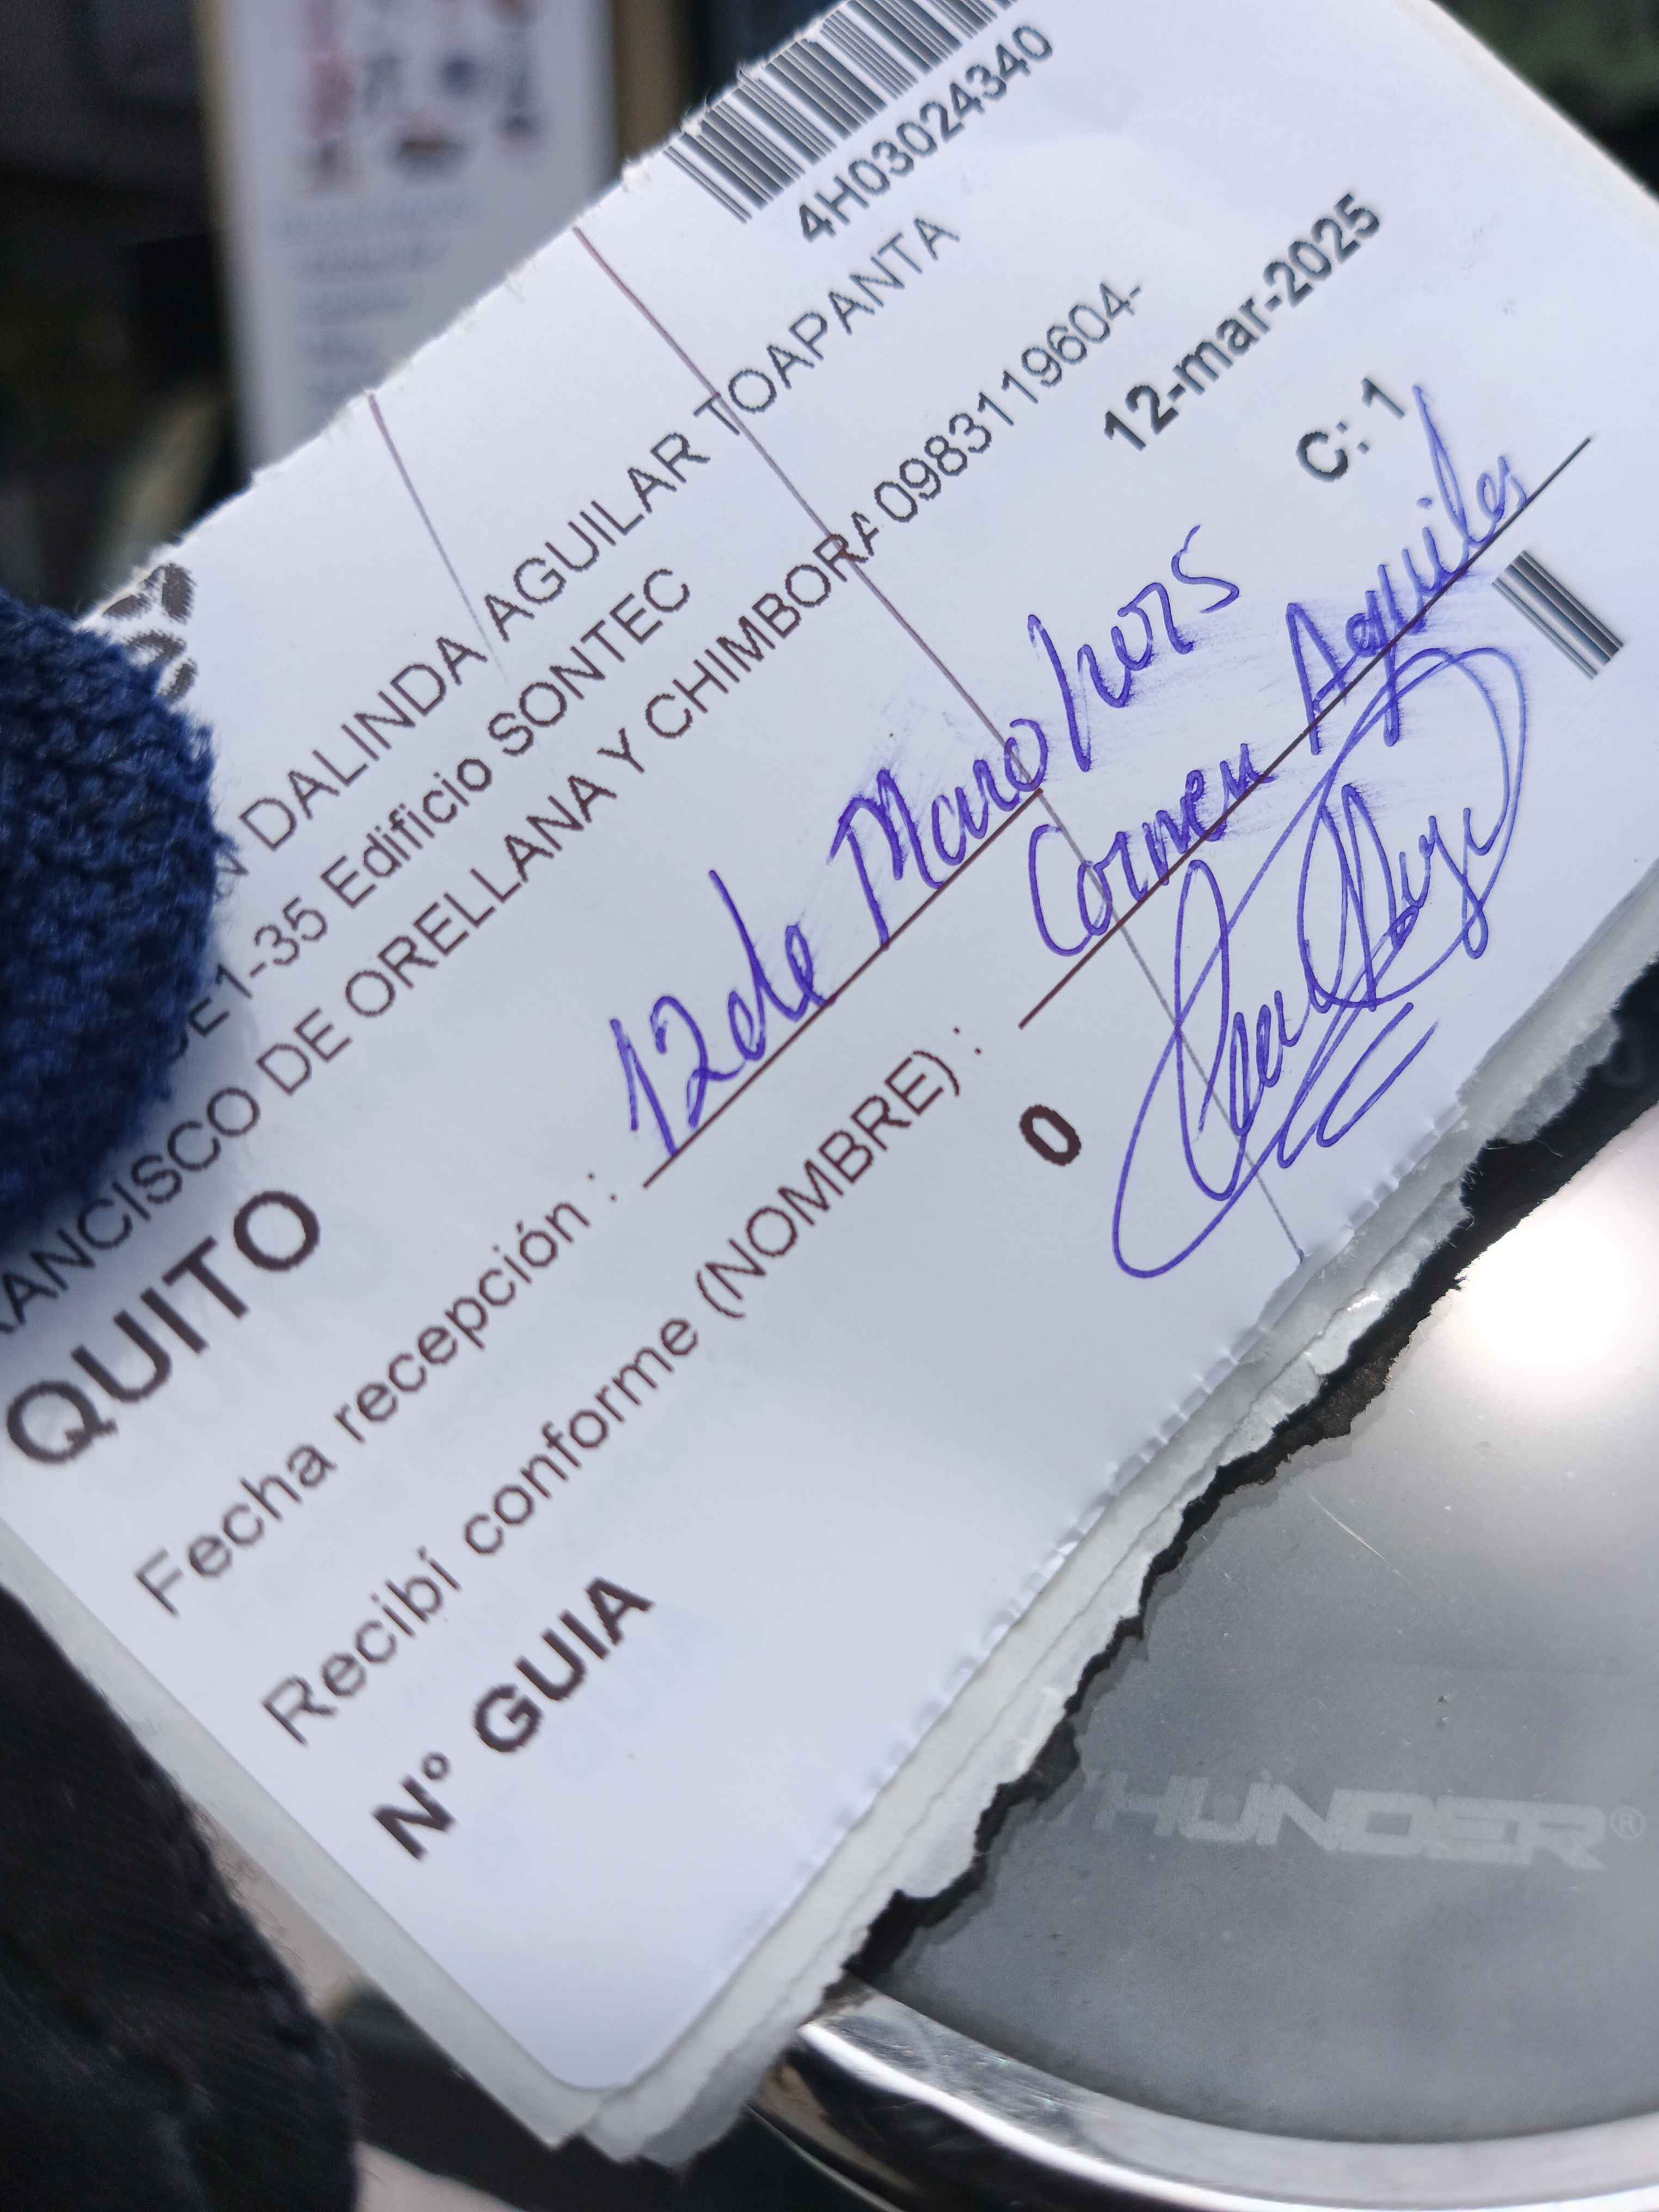 4H03024340
N DALINDA AGUILAR TOAPANTA
E1-35 Edificio SONTEC
RANCISCO DE ORELLANA Y CHIMBORA 0983119604-
QUITO
12-mar-2025
C: 1
Fecha recepción : 12 de Marzo
Recibí conforme (NOMBRE) : Carmen Aguilar
Nº GUIA 0
THUNDER®